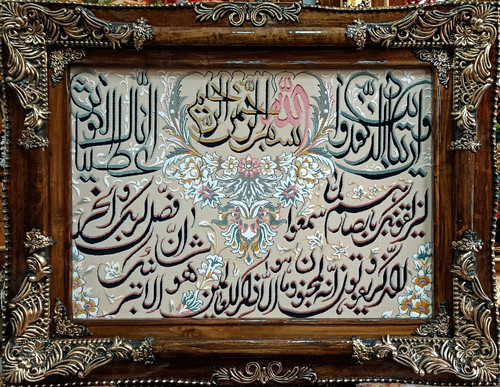 بسم الله الرحمن الرحيم
وان يكاد الذين كفروا
ليزلقونك بابصارهم لما سمعوا
الذكر ويقولون انه لمجنون وما هو الا ذكر للعالمين
انا اعطيناك الكوثر
فصل لربك وانحر
ان شانئك
هو الابتر